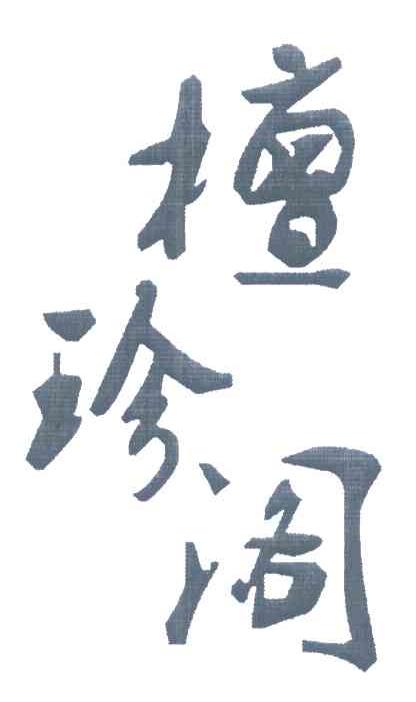 檀珍阁